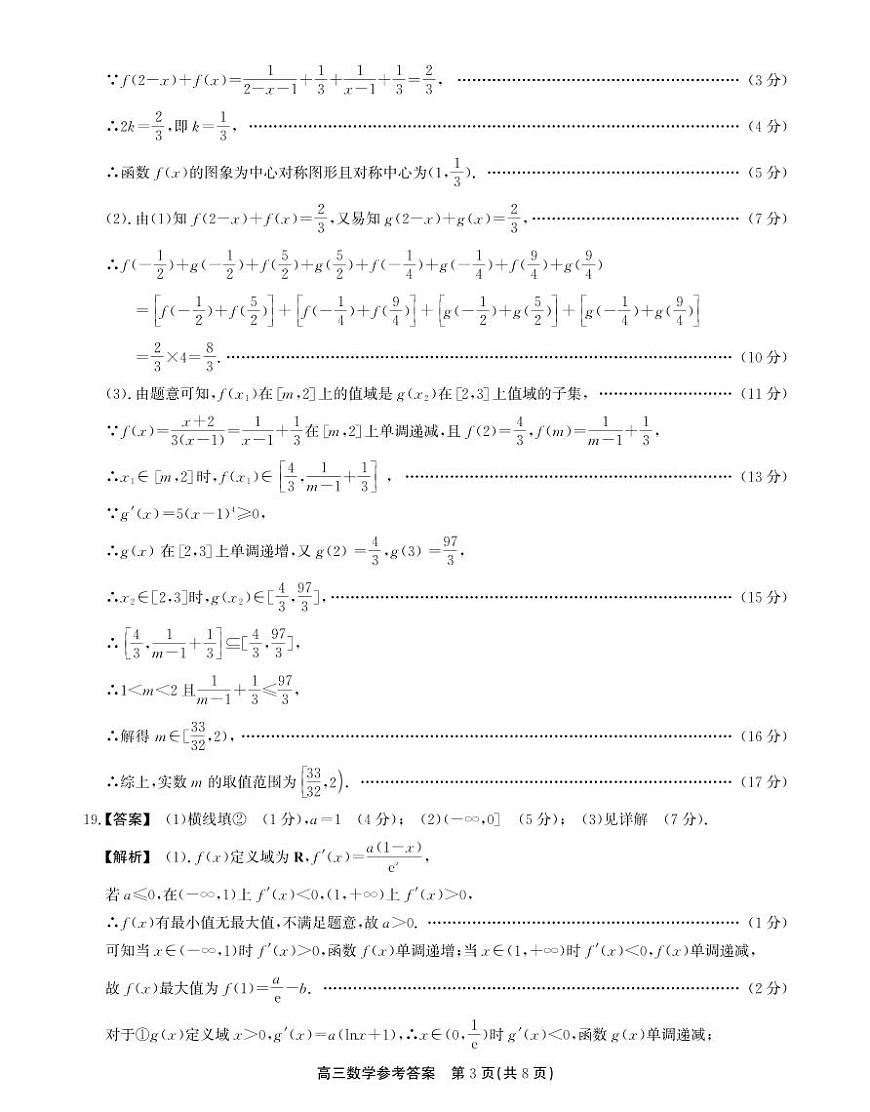 ∵f(2−x)+f(x)=1/(2−x−1)+1/3+1/(x−1)+1/3=2/3, ……………………（3 分）
∴2k=2/3,即 k=1/3, ……………………（4 分）
∴函数 f(x)的图象为中心对称图形且对称中心为(1,1/3). ……………………（5 分）
(2).由(1)知 f(2−x)+f(x)=2/3,又易知 g(2−x)+g(x)=2/3,……………………（7 分）
∴f(−1/2)+g(−1/2)+f(5/2)+g(5/2)+f(−1/4)+g(−1/4)+f(9/4)+g(9/4)
=[f(−1/2)+f(5/2)]+[f(−1/4)+f(9/4)]+[g(−1/2)+g(5/2)]+[g(−1/4)+g(9/4)]
=2/3×4=8/3. ……………………（10 分）
(3).由题意可知,f(x₁)在[m,2]上的值域是 g(x₂)在[2,3]上值域的子集, ……………………（11 分）
∵f(x)=(x+2)/(3(x−1))=1/(x−1)+1/3在[m,2]上单调递减,且 f(2)=4/3,f(m)=1/(m−1)+1/3,
∴x₁∈[m,2]时,f(x₁)∈[4/3,1/(m−1)+1/3] , ……………………（13 分）
∵g′(x)=5(x−1)⁴≥0,
∴g(x) 在[2,3]上单调递增,又 g(2) =4/3,g(3) =97/3,
∴x₂∈[2,3]时,g(x₂)∈[4/3,97/3],……………………（15 分）
∴[4/3,1/(m−1)+1/3]⊆[4/3,97/3],
∴1<m<2 且1/(m−1)+1/3≤97/3,
∴解得 m∈[33/32,2),……………………（16 分）
∴综上,实数 m 的取值范围为[33/32,2). ……………………（17 分）
19.【答案】 (1)横线填② （1 分）,a=1 （4 分）; (2)(−∞,0] （5 分）; (3)见详解 （7 分）.
【解析】 (1). f(x)定义域为 R,f′(x)=a(1−x)/eˣ,
若 a≤0,在(−∞,1)上 f′(x)<0,(1,+∞)上 f′(x)>0,
∴f(x)有最小值无最大值,不满足题意,故 a>0. ……………………（1 分）
可知当 x∈(−∞,1)时 f′(x)>0,函数 f(x)单调递增;当 x∈(1,+∞)时 f′(x)<0,f(x)单调递减,
故 f(x)最大值为 f(1)=a/e−b. ……………………（2 分）
对于①g(x)定义域 x>0,g′(x)=a(lnx+1),∴x∈(0,1/e)时 g′(x)<0,函数 g(x)单调递减;
高三数学参考答案 第 3 页(共 8 页)